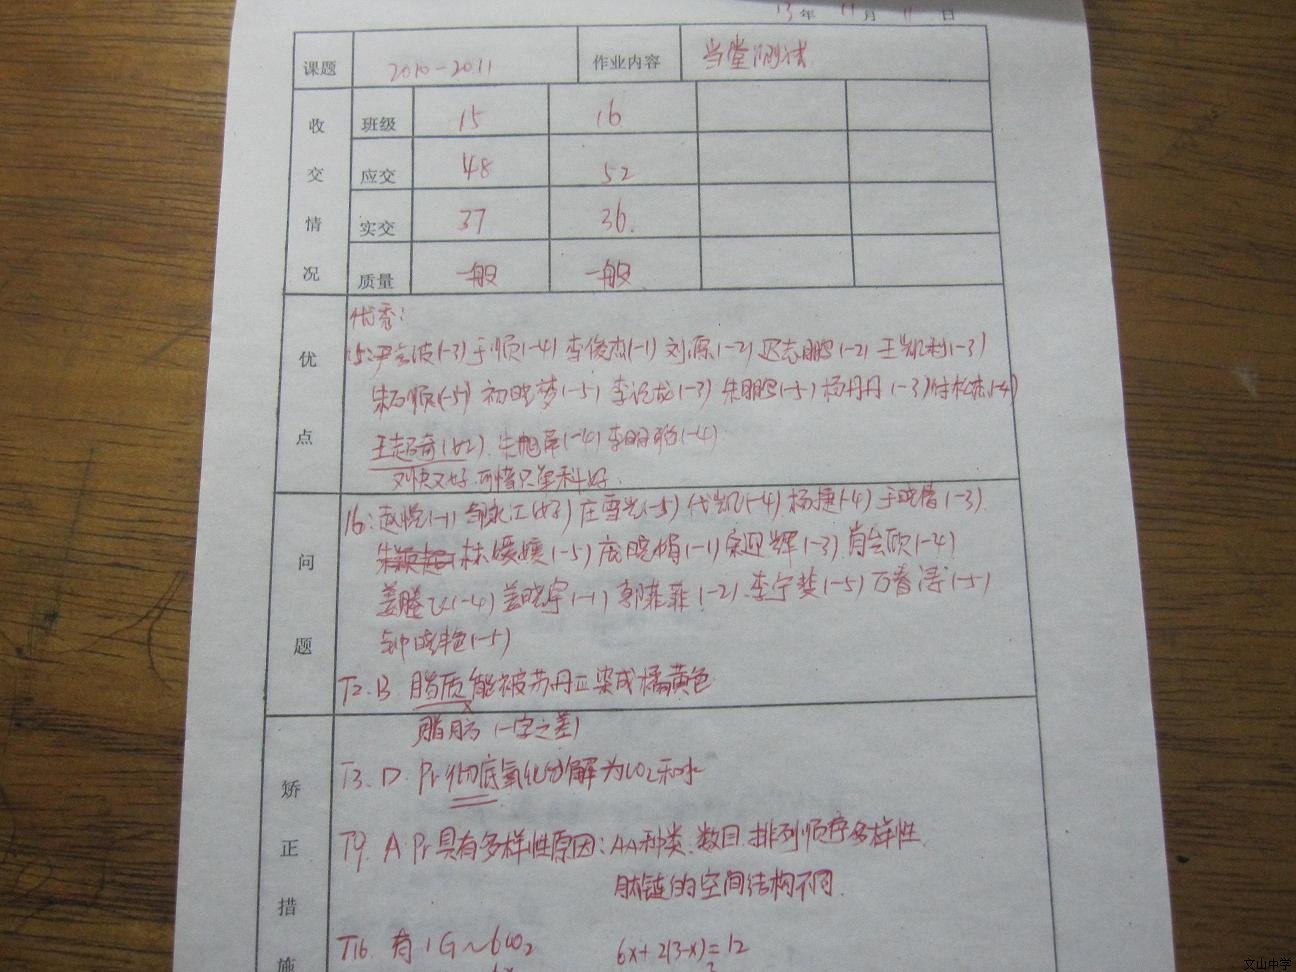 13年 11月 11日
课题 2010-2011 作业内容 当堂测试
收交情况
班级 15 16
应交 48 52
实交 37 36.
质量 一般 一般
优点
优秀:
15: (-3) 于顺(-4) 李俊杰(-1) 刘源(-2) 迟志鹏(-2) 王凯(-3)
朱石顺(-5) 初晓梦(-5) 李(-3) 朱鹏(-5) 杨丹丹(-3) 付松杰(-4)
王超奇 朱旭(-4) 李明(-4)
又快又好.可惜只单科好.
问题
16: 赵悦(-1) 邹永江(好) 庄雪(-5) 代凯(-4) 杨捷(-4) 于晓倩(-3)
林媛媛(-5) 庞晓娟(-1) 宋亚辉(-3) 肖(-4)
姜腾飞(-4) 姜晓宇(-1) 郭菲菲(-2) 李宁(-5) 万春涛(-5)
钟晓艳(-5)
T2.B 脂质能被苏丹Ⅲ染成橘黄色
脂肪(一字之差)
矫正措施
T3.D. Pr彻底氧化分解为CO2和水
T9. A. Pr具有多样性原因:AA种类.数目.排列顺序多样性.
肽链的空间结构不同.
T16. 有 1G~6CO2 6x+2(3-x)=12
文山中学